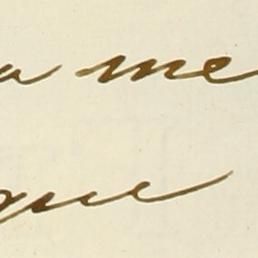 a me
que